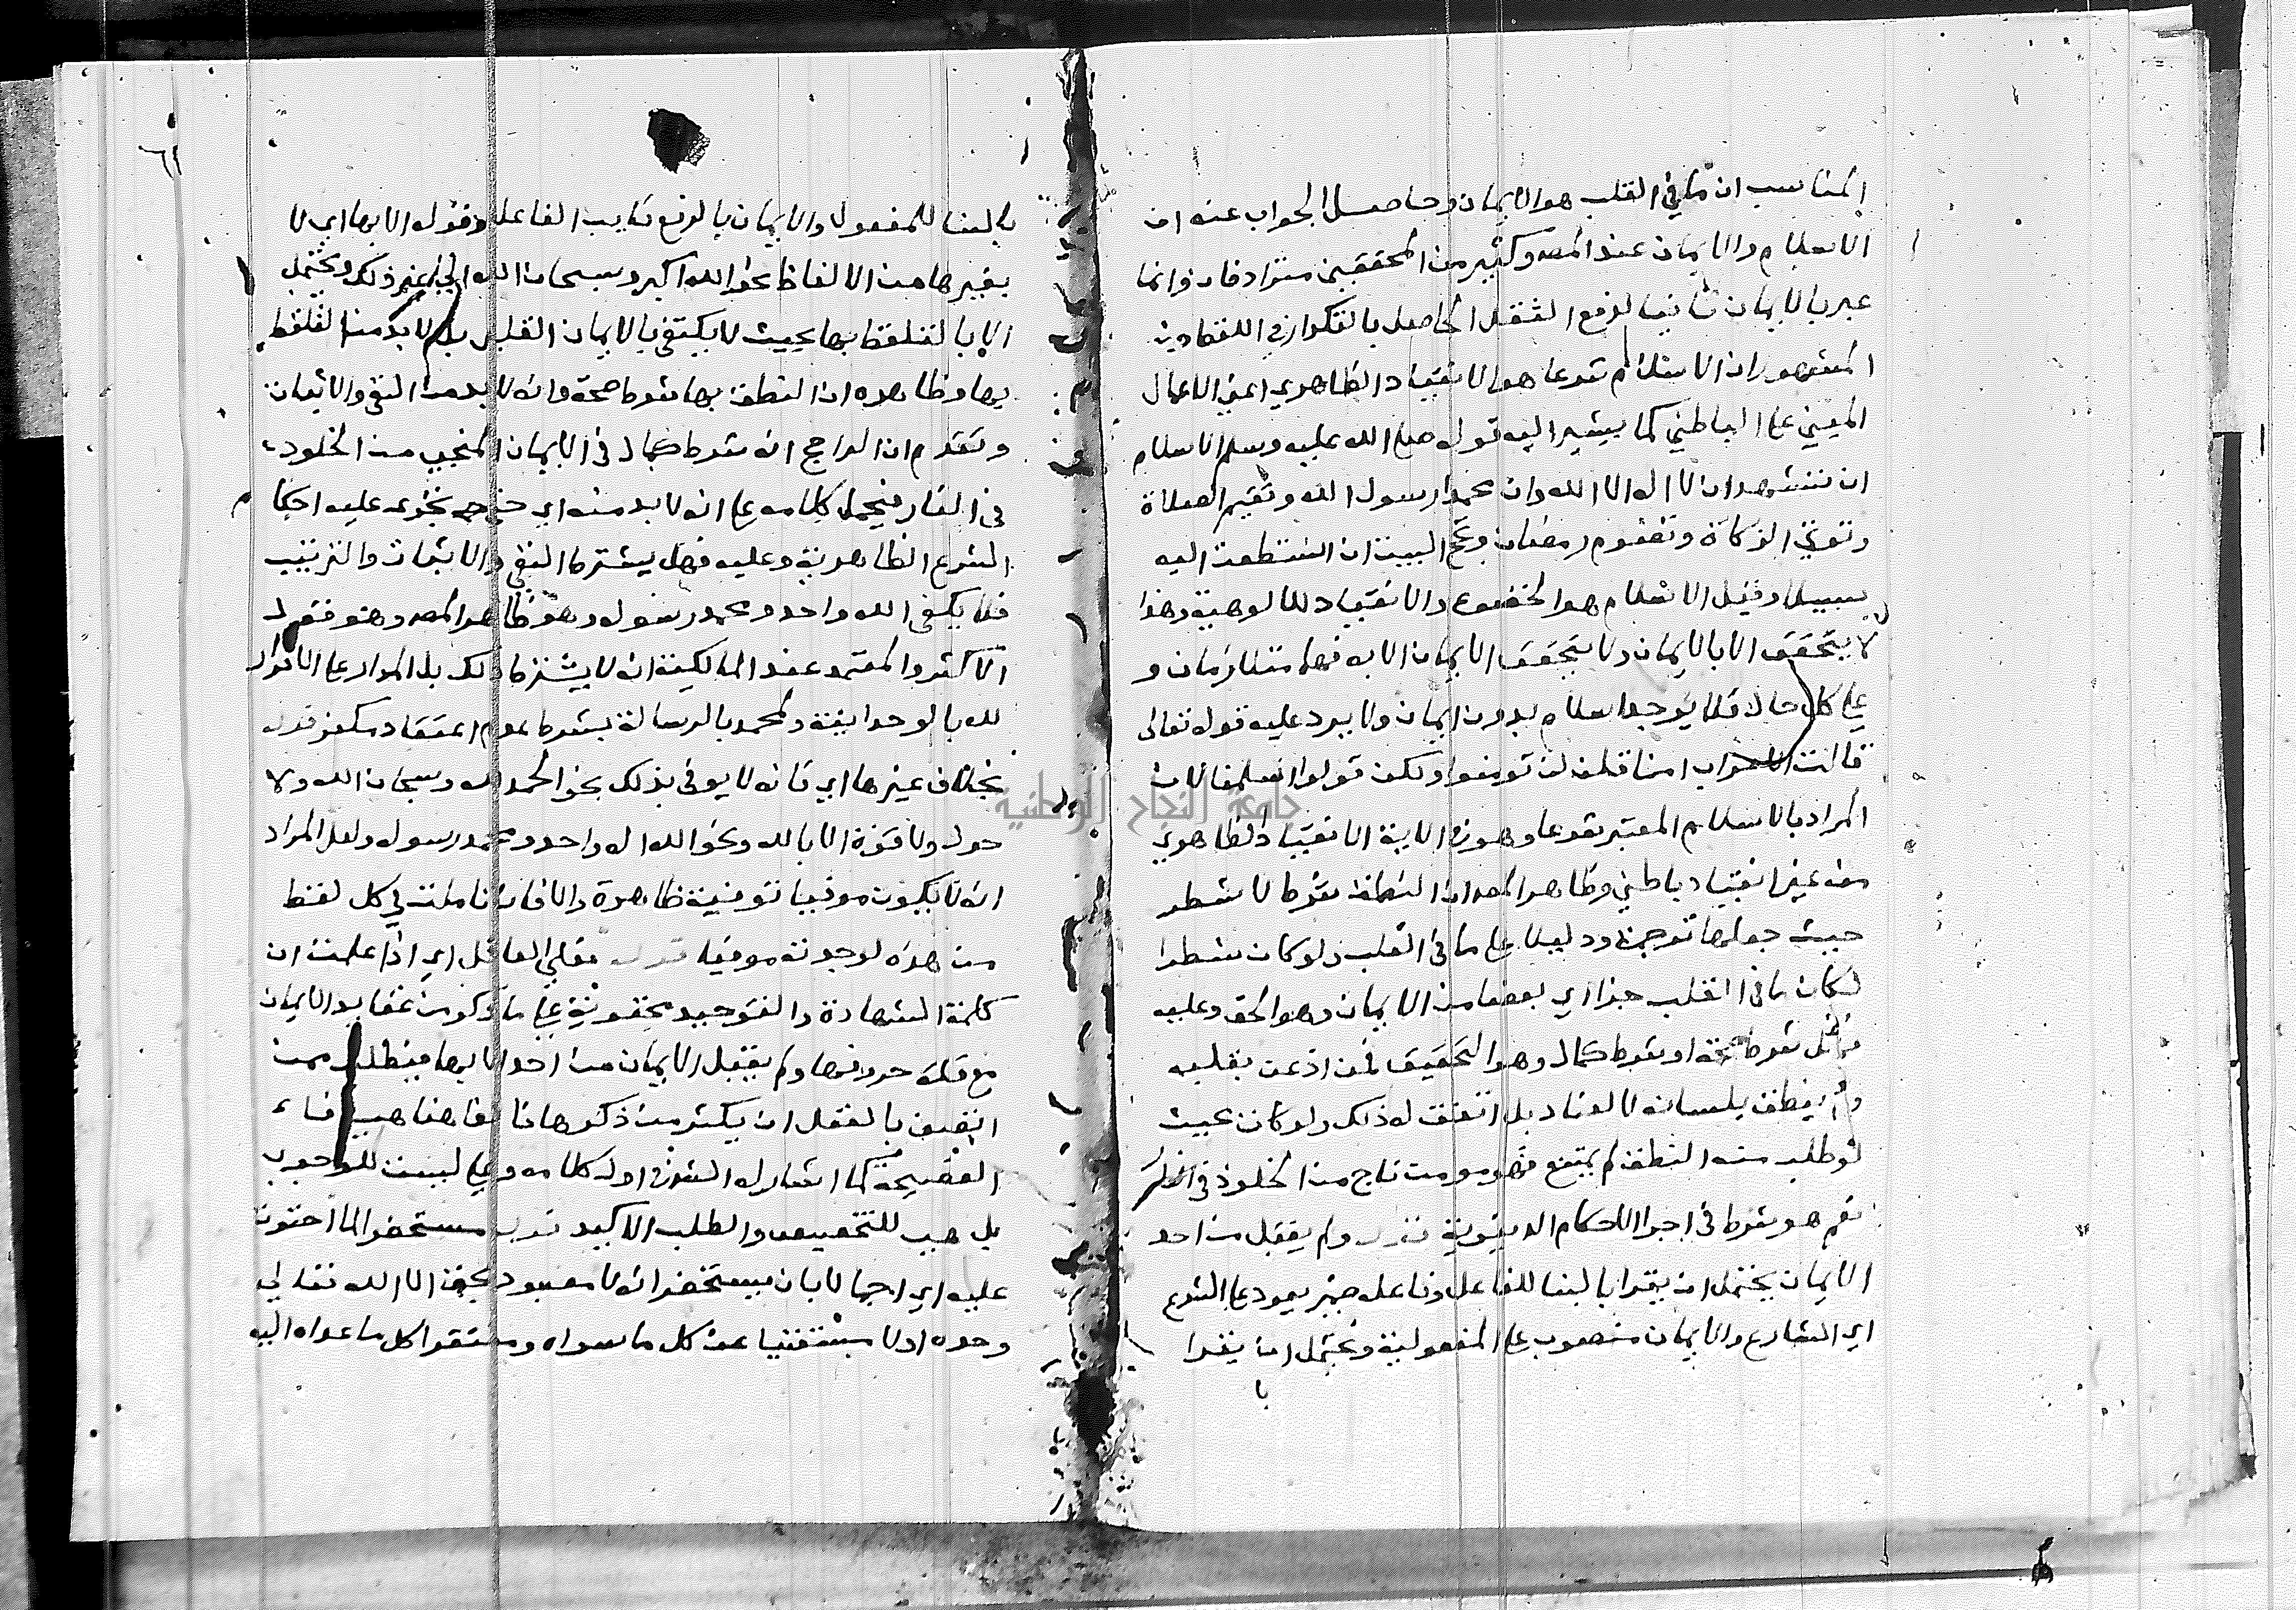 المناسب ان ما في القلب هو الايمان وحاصل الجواب عنه ان
الاسلام والايمان عند المصـ وكثير من المحققين مترادفان وانما
عبر بالايمان ثانيا لدفع الثقل الحاصل بالتكرار في اللفظ دين
المشهور ان الاسلام شرعا هو الانقياد الظاهري اعني الاعمال
المبني على الباطني كما يشير اليه قوله صلى الله عليه وسلم الاسلام
ان تشهد ان لا اله الا الله وان محمدا رسول الله وتقيم الصلاة
وتوتي الزكاة وتصوم رمضان وتحج البيت ان استطعت اليه
سبيلا وقيل الاسلام هو الخضوع والانقياد للالوهية وهذا
لا يتحقق الا بالايمان ولا يتحقق الايمان الا به فهما متلازمان و
على كل حال فلا يوجد اسلام بدون ايمان ولا يرد عليه قوله تعالى
قالت الاعراب امنا قل لن تومنوا ولكن قولوا اسلمنا لان
المراد بالاسلام المعتبر شرعا وهو في الاية الانقياد الظاهري
من غير انقياد باطني وظاهر المصـ ان النطق شرط لا شطر
حيث جعلها ترجمة ودليلا على ما في القلب ولو كان شطرا
لكان ما في القلب جزا اي بعضا من الايمان وهو الحق وعليه
فهل شرط صحة او شرط كمال وهو التحقيق فمن اذعن بقلبه
ولم ينطق بلسانه لا لعناد بل اتفق له ذلك ولو كان بحيث
لو طلب منه النطق لم يمتنع فهو مومن ناج من الخلود في النار
نعم هو شرط في اجرا الاحكام الدنيوية قوله ولم يقبل من احد
الايمان يحتمل ان يقرا بالبنا للفاعل وفاعله ضمير يعود على الشرع
اي الشارع والايمان منصوب على المفعولية ويحتمل ان يقرا
با
٦١
بالبنا للمفعول والايمان بالرفع نايب الفاعل وقوله الا بها اي لا
بغيرها من الالفاظ نحو الله اكبر وسبحان الله الى غير ذلك ويحتمل
الا بالتلفظ بها بحيث لا يكتفي بالايمان القلبي بل لا بد من التلفظ
بها وظاهره ان النطق بها شرط صحة وانه لا بد من النفي والاثبات
وتقدم ان الراجح انه شرط كمال في الايمان المنجي من الخلود
في النار فيحمل كلامه على انه لا بد منه اي حتى تجرى عليه احكام
الشرع الظاهرية وعليه فهل يشترط النفي والاثبات والترتيب
فلا يكفي الله واحد ومحمد رسوله وهو ظاهر المصـ وهو قول
الاكثر والمعتمد عند المالكية انه لا يشترط ذلك بل المدار على الاقرار
لله بالوحدانية ولمحمد بالرسالة بشرط عدم اعتقاد مكفر قوله
بخلاف غيرها اي فانه لا يوفى بذلك نحو الحمد لله وسبحان الله ولا
حول ولا قوة الا بالله ونحو الله اله واحد ومحمد رسوله ولعل المراد
انه لا يكون موفيا توفية ظاهرة والا فان تاملت في كل لفظ
من هذه لوجدته موفيا قوله فعلى العاقل اي اذا علمت ان
كلمة الشهادة والتوحيد محتوية على ما ذكر من عقايد الايمان
مع قلة حروفها ولم يقبل الايمان من احد الا بها فيطلب ممن
اتصف بالعقل ان يكثر من ذكرها فالفا هنا هي فاء
الفصيحة كما اشار له الشـ في اول كلامه وعلى ليست للوجوب
بل هي للتحضيض والطلب الاكيد قوله مستحضرا لما احتوت
عليه اي اجمالا بان يستحضر انه لا معبود بحق الا الله تعالى
وحده اولا مستغنيا عن كل ما سواه ومفتقرا كل ما عداه اليه
جامعة النجاح الوطنية